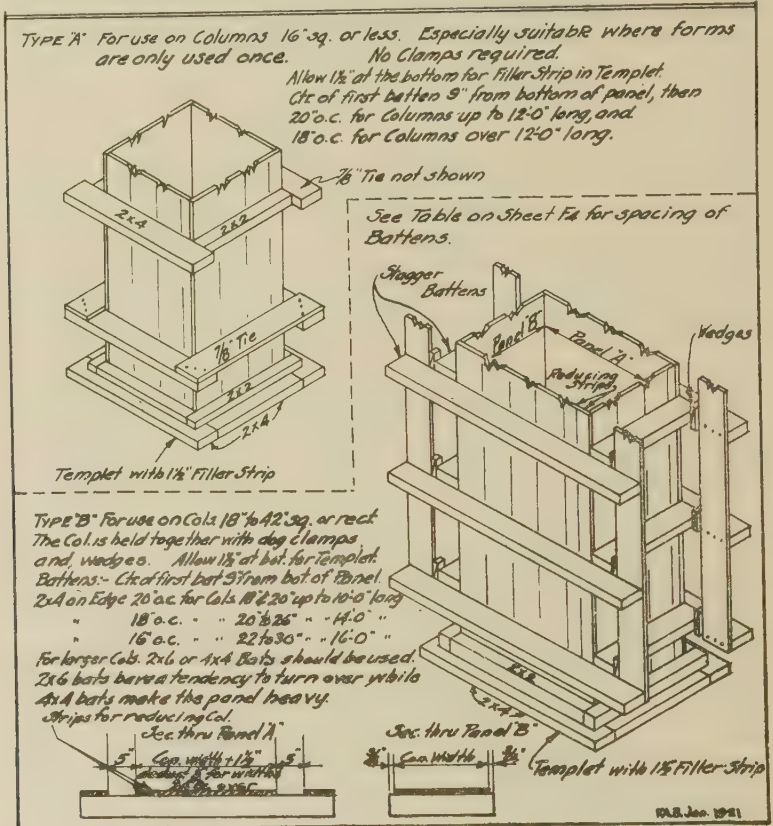 TYPE "A" For use on Columns 16" sq. or less. Especially suitable where forms
are only used once. No Clamps required.
Allow 1½" at the bottom for Filler Strip in Templet.
Ctr of first batten 9" from bottom of panel, then
20" o.c. for Columns up to 12'-0" long, and
18" o.c. for Columns over 12'-0" long.
⅞" Tie not shown
2x4
2x2
See Table on Sheet F4 for spacing of
Battens.
Stagger
Battens
Panel "B"
Panel "A"
Wedges
Reducing
Strips
⅞" Tie
2x2
2x4
Templet with 1½" Filler Strip
TYPE "B" For use on Cols. 18" to 42" sq. or rect.
The Col. is held together with dog clamps
and wedges. Allow 1½" at bot. for Templet.
Battens:- Ctr of first bat 9" from bot. of Panel.
2x4 on Edge 20" o.c. for Cols 18" & 20" up to 10'-0" long
" 18" o.c. " " 20" to 26" " " 14'-0" "
" 16" o.c. " " 22 to 30" " " 16'-0" "
For larger Cols. 2x6 or 4x4 Bats should be used.
2x6 bats have a tendency to turn over while
4x4 bats make the panel heavy.
2x2
2x4
Strips for reducing Col.
Sec. thru Panel "A"
5" Con. width + 1½" 5"
deduct for width
Sec. thru Panel "B"
Con. Width
Templet with 1½" Filler Strip
R.A.B. Jan. 1921